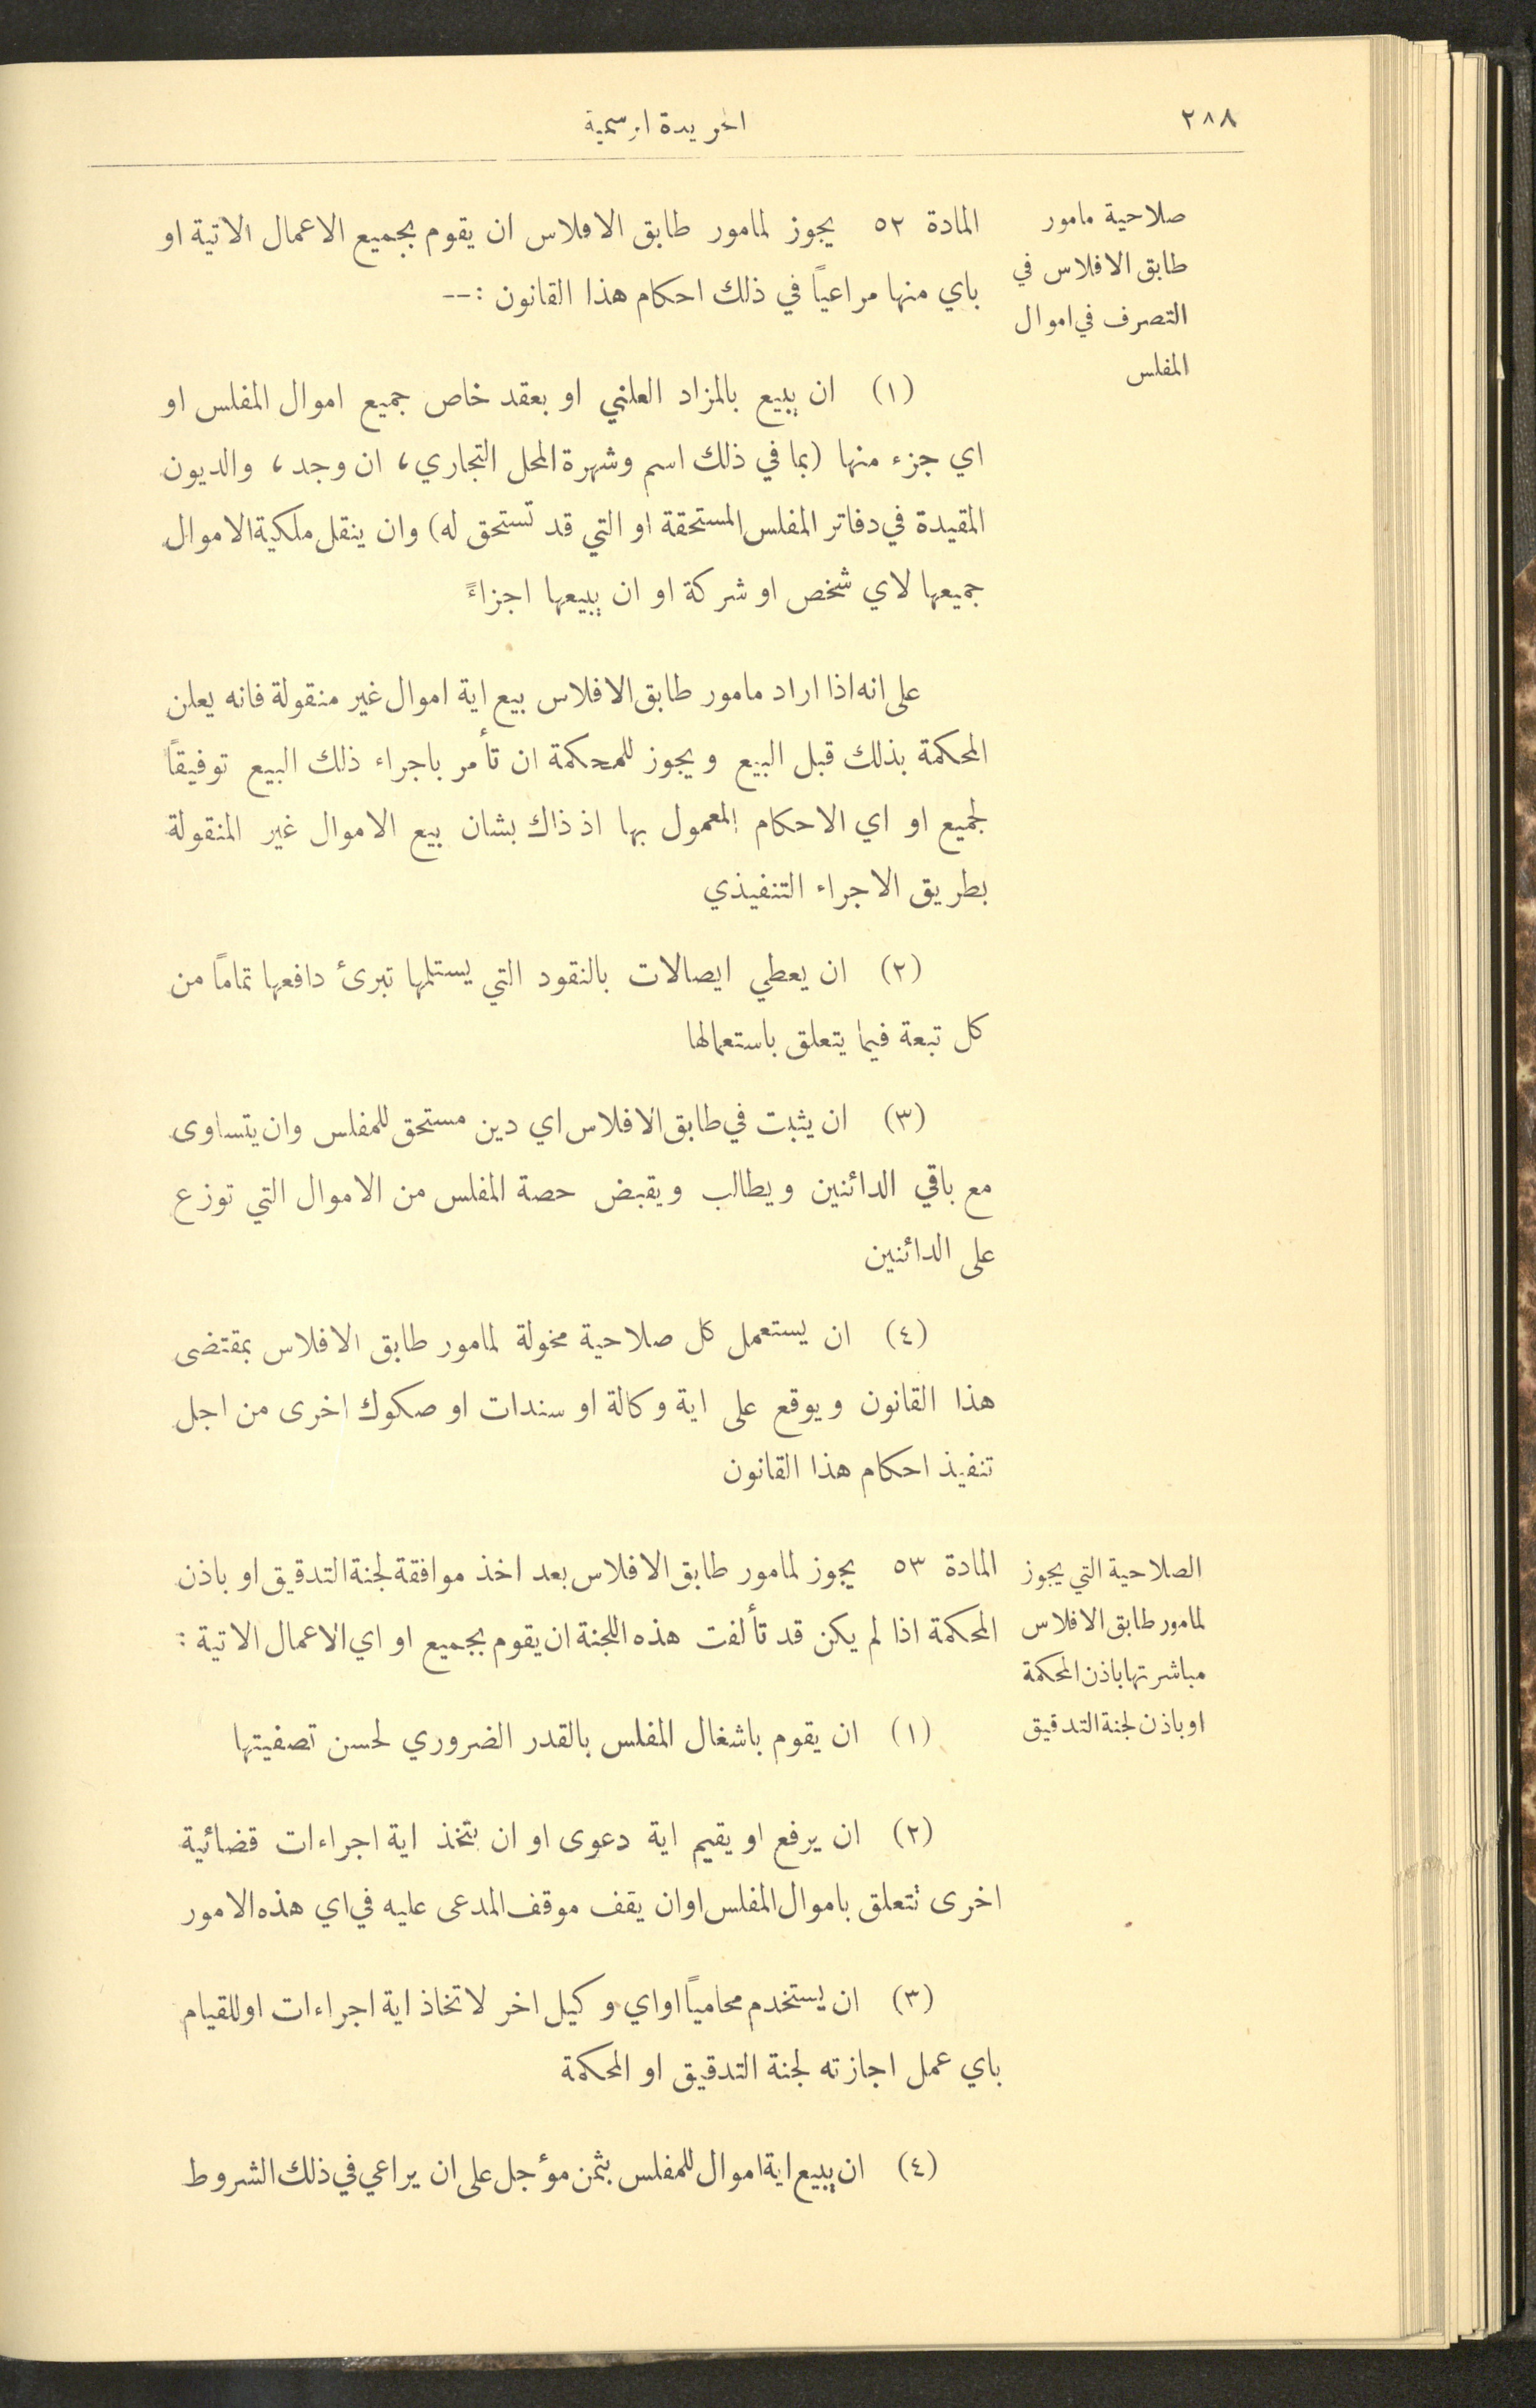 ٢٨٨
الجريدة الرسمية
صلاحية مامور
طابق الافلاس في
التصرف في اموال
المفلس
المادة ٥٢ يجوز لمامور طابق الافلاس ان يقوم بجميع الاعمال الاتية او
باي منها مراعياً في ذلك احكام هذا القانون :--
(١) ان يبيع بالمزاد العلني او بعقد خاص جميع اموال المفلس او
اي جزء منها (بما في ذلك اسم وشهرة المحل التجاري، ان وجد، والديون
المقيدة في دفاتر المفلس المستحقة او التي قد تستحق له) وان ينقل ملكية الاموال
جميعها لاي شخص او شركة او ان يبيعها اجزاءً
على انه اذا اراد مامور طابق الافلاس بيع اية اموال غير منقولة فانه يعلن
المحكمة بذلك قبل البيع ويجوز للمحكمة ان تأمر باجراء ذلك البيع توفيقاً
لجميع او اي الاحكام المعمول بها اذ ذاك بشان بيع الاموال غير المنقولة
بطريق الاجراء التنفيذي
(٢) ان يعطي ايصالات بالنقود التي يستلمها تبرئ دافعها تماماً من
كل تبعة فيما يتعلق باستعمالها
(٣) ان يثبت في طابق الافلاس اي دين مستحق للمفلس وان يتساوى
مع باقي الدائنين ويطالب ويقبض حصة المفلس من الاموال التي توزع
على الدائنين
(٤) ان يستعمل كل صلاحية مخولة لمامور طابق الافلاس بمقتضى
هذا القانون ويوقع على اية وكالة او سندات او صكوك اخرى من اجل
تنفيذ احكام هذا القانون
الصلاحية التي يجوز
لمامور طابق الافلاس
مباشرتها باذن المحكمة
او باذن لجنة التدقيق
المادة ٥٣ يجوز لمامور طابق الافلاس بعد اخذ موافقة لجنة التدقيق او باذن
المحكمة اذا لم يكن قد تألفت هذه اللجنة ان يقوم بجميع او اي الاعمال الاتية :
(١) ان يقوم باشغال المفلس بالقدر الضروري لحسن تصفيتها
(٢) ان يرفع او يقيم اية دعوى او ان يتخذ اية اجراءات قضائية
اخرى تتعلق باموال المفلس او ان يقف موقف المدعى عليه في اي هذه الامور
(٣) ان يستخدم محامياً او اي وكيل اخر لاتخاذ اية اجراءات او للقيام
باي عمل اجازته لجنة التدقيق او المحكمة
(٤) ان يبيع اية اموال للمفلس بثمن مؤجل على ان يراعي في ذلك الشروط